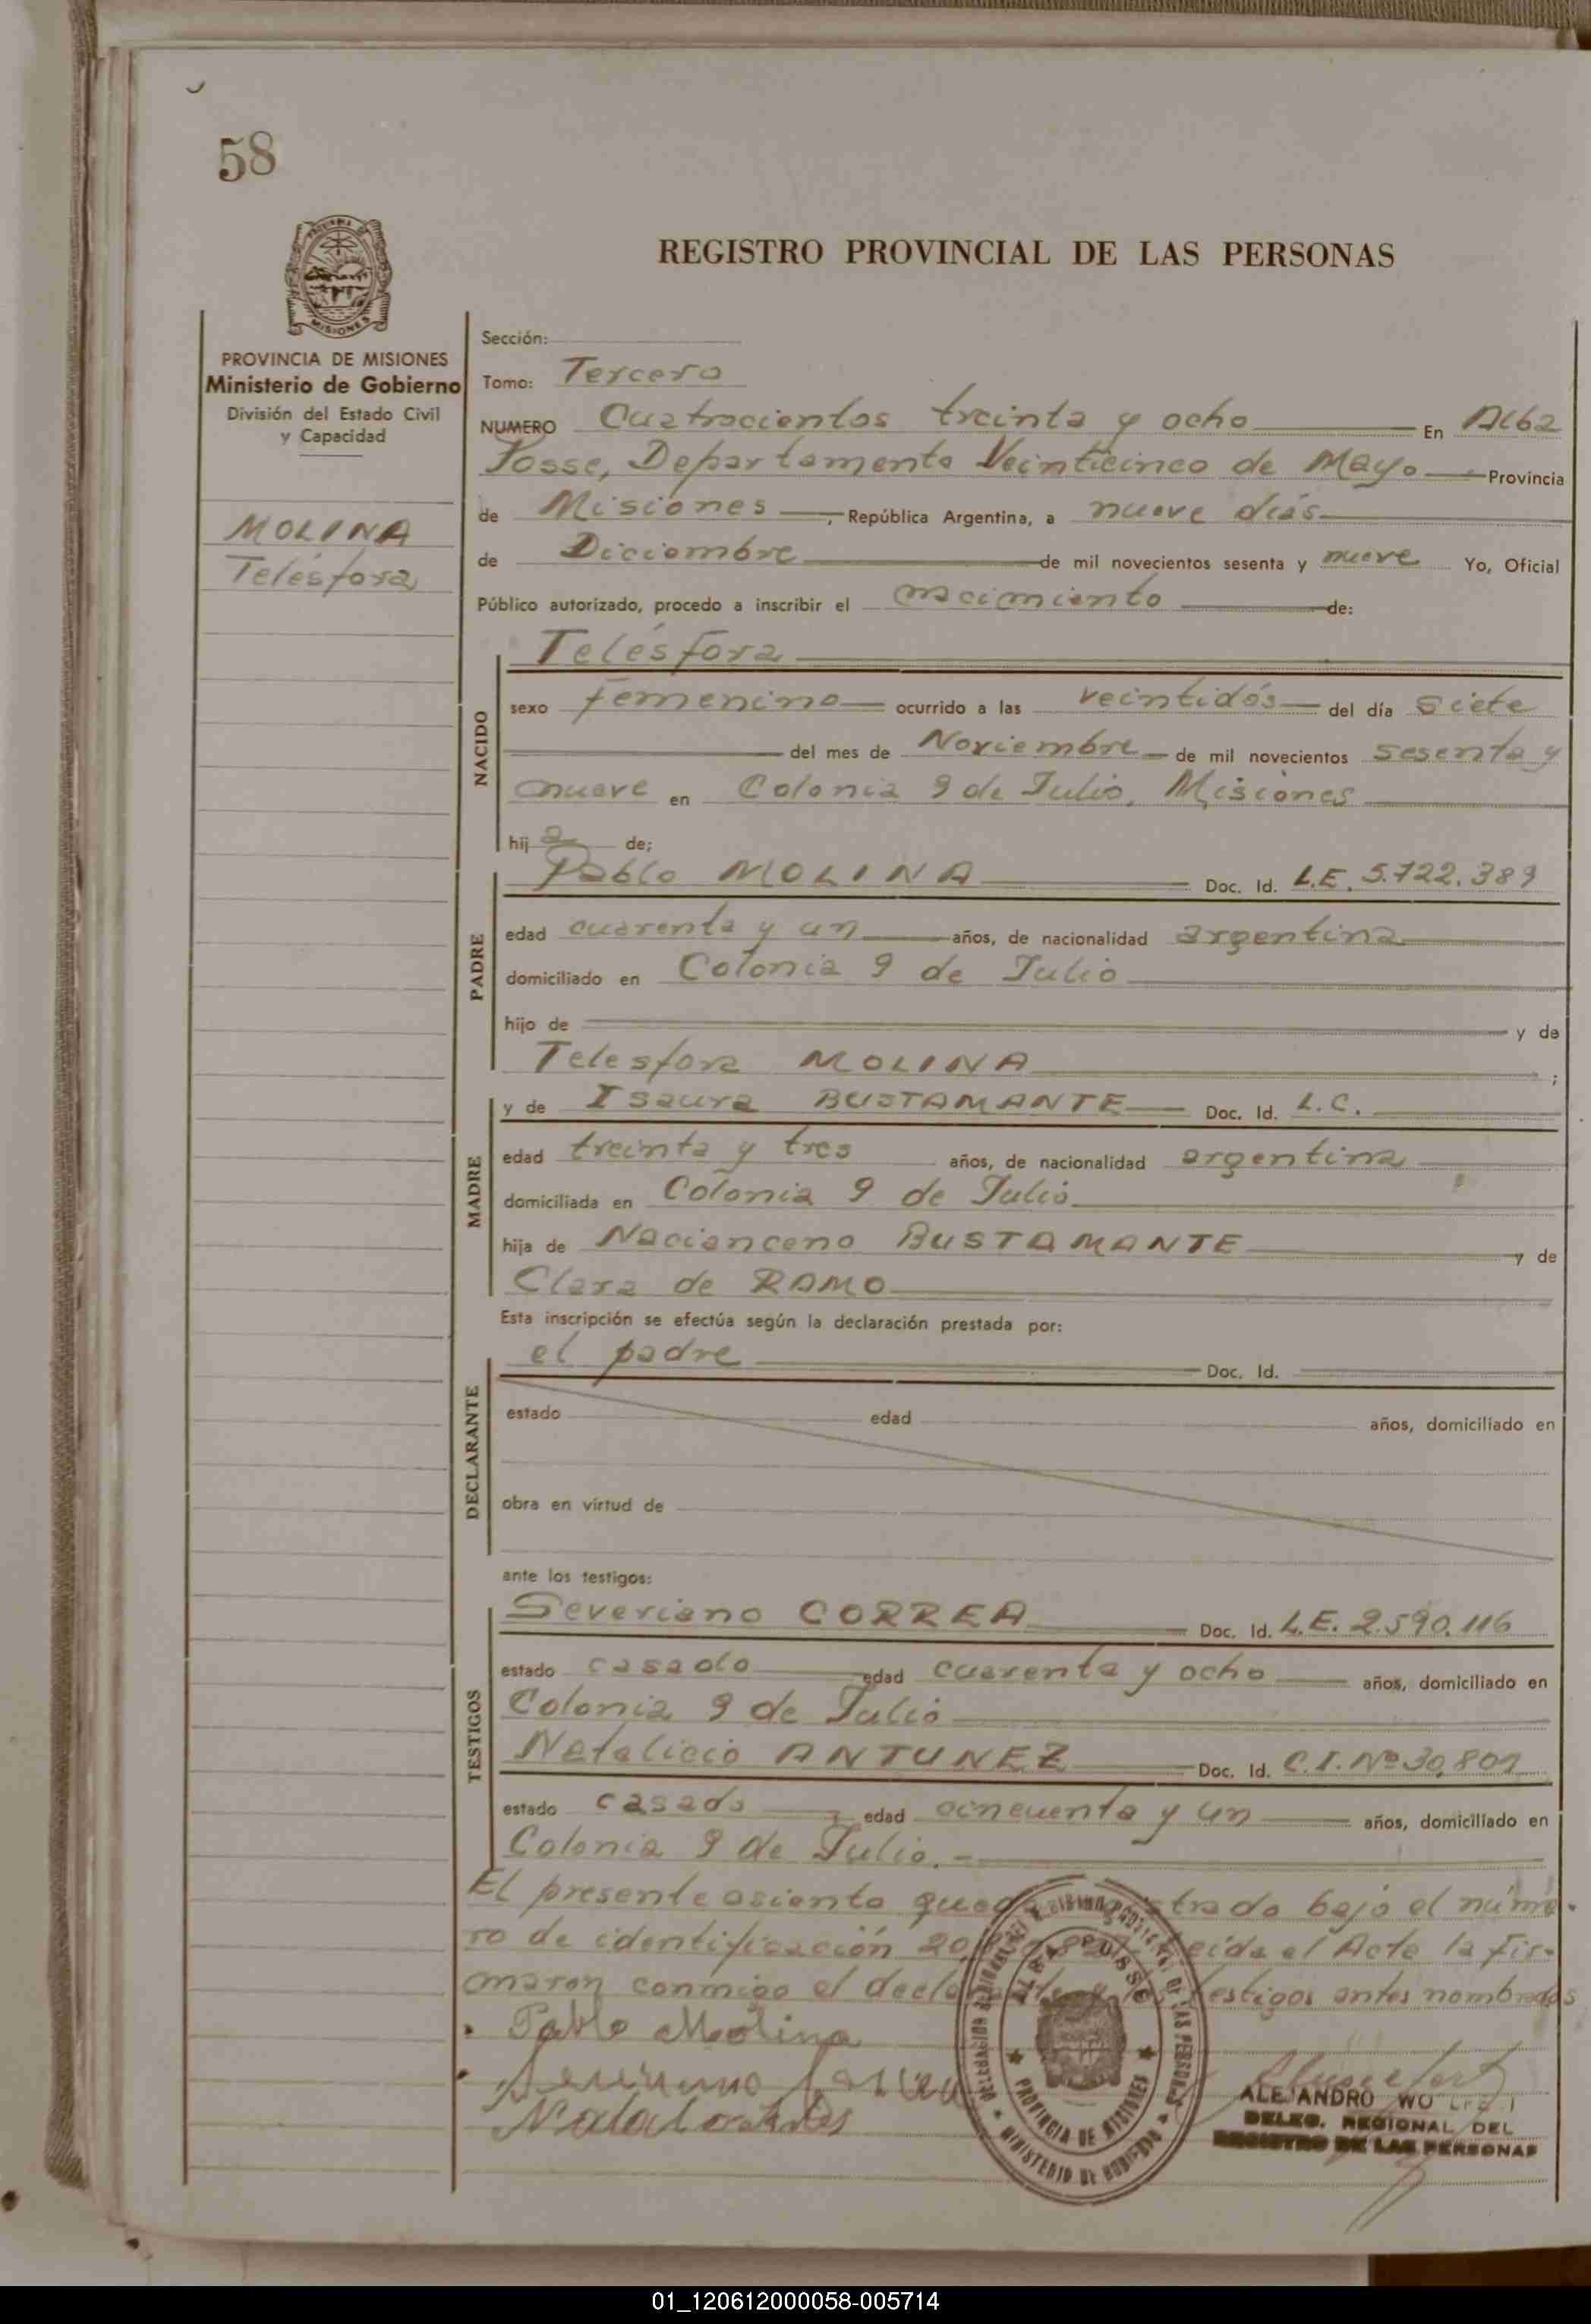 58
MISIONES
PROVINCIA DE MISIONES
Ministerio de Gobierno
División del Estado Civil
y Capacidad
MOLINA
Telésfora
REGISTRO PROVINCIAL DE LAS PERSONAS
Sección:
Tomo: Tercero
NUMERO Cuatrocientos treinta y ocho En Alba
Posse, Departamento Veinticinco de Mayo Provincia
de Misiones, República Argentina, a nueve días
de Diciembre de mil novecientos sesenta y nueve Yo, Oficial
Público autorizado, procedo a inscribir el nacimiento de:
NACIDO
Telésfora
sexo femenino ocurrido a las veintidós del día siete
del mes de Noviembre de mil novecientos sesenta y
nueve en Colonia 9 de Julio, Misiones
hija de;
PADRE
Pablo MOLINA Doc. Id. L.E. 5.722.389
edad cuarenta y un años, de nacionalidad argentina
domiciliado en Colonia 9 de Julio
hijo de y de
Telesfora MOLINA ;
MADRE
y de Isaura BUSTAMANTE Doc. Id. L.C.
edad treinta y tres años, de nacionalidad argentina
domiciliada en Colonia 9 de Julio
hija de Nacianceno BUSTAMANTE y de
Clara de RAMO
Esta inscripción se efectúa según la declaración prestada por:
DECLARANTE
el padre Doc. Id.
estado edad años, domiciliado en
obra en virtud de
ante los testigos:
TESTIGOS
Severiano CORREA Doc. Id. L.E. 2.590.116
estado casado edad cuarenta y ocho años, domiciliado en
Colonia 9 de Julio
Natalicio ANTUNEZ Doc. Id. C.I. Nº 30.801
estado casado edad cincuenta y un años, domiciliado en
Colonia 9 de Julio.-
El presente asiento bajo el núme-
ro de identificación leída el Acta la fir-
maron conmigo el testigos antes nombrados
Pablo Molina
ALBA POSSE
PROVINCIA DE MISIONES
MINISTERIO DE GOBIERNO
ALEJANDRO
DELEG. REGIONAL DEL
REGISTRO DE LAS PERSONAS
01_120612000058-005714